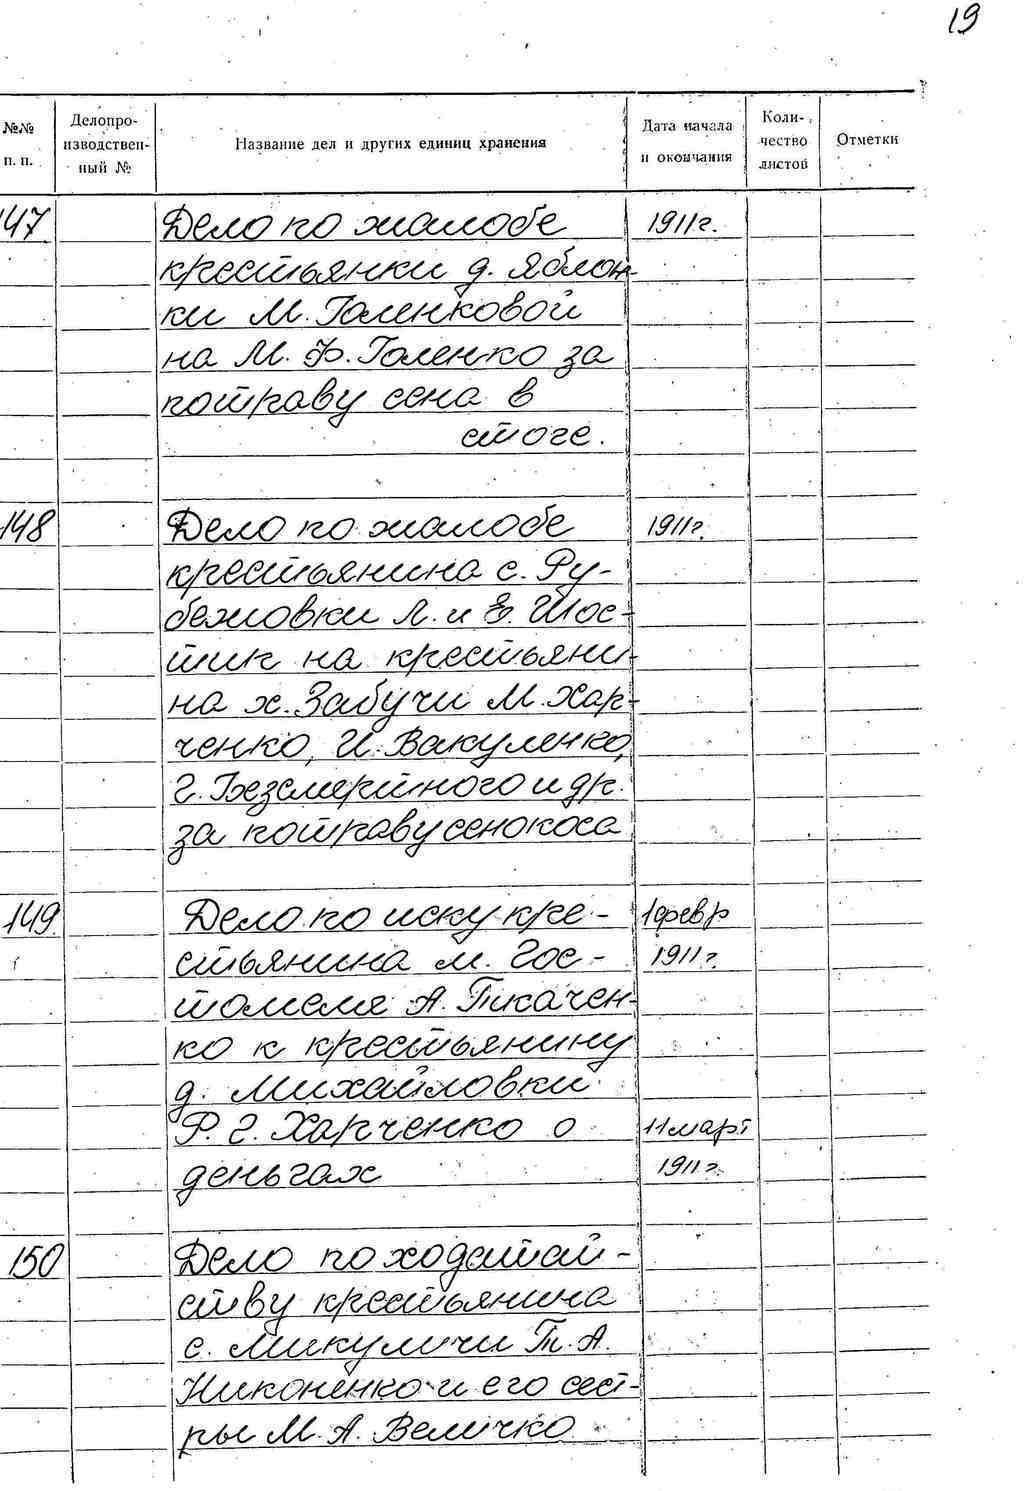 19
№№ п. п.
Делопро-
изводствен-
ный №
Название дел и других единиц хранения
Дата начала
и окончания
Коли-
чество
листов
Отметки
147 Дело по жалобе 1911г.
крестьянки д. Яблон-
ки М. Голенковой
на М. Ф. Голенко за
потраву сена в
стоге.
148 Дело по жалобе 1911г.
крестьянина с. Ру-
бежовки Л. и Е. Шос-
тик на крестьяни-
на х. Забучи М. Хар-
ченко, И. Вакуленко,
Г. Безсмертного и др.
за потраву сенокоса
149. Дело по иску кре- 1 февр
стьянина м. Гос- 1911г.
томеля А. Ткачен-
ко к крестьянину
д. Михайловки
Р. Г. Харченко о 11 март
деньгах 1911г.
150 Дело по ходатай-
ству крестьянина
с. Микуличи Т. А.
Никоненко и его сест-
ры М. А. Величко